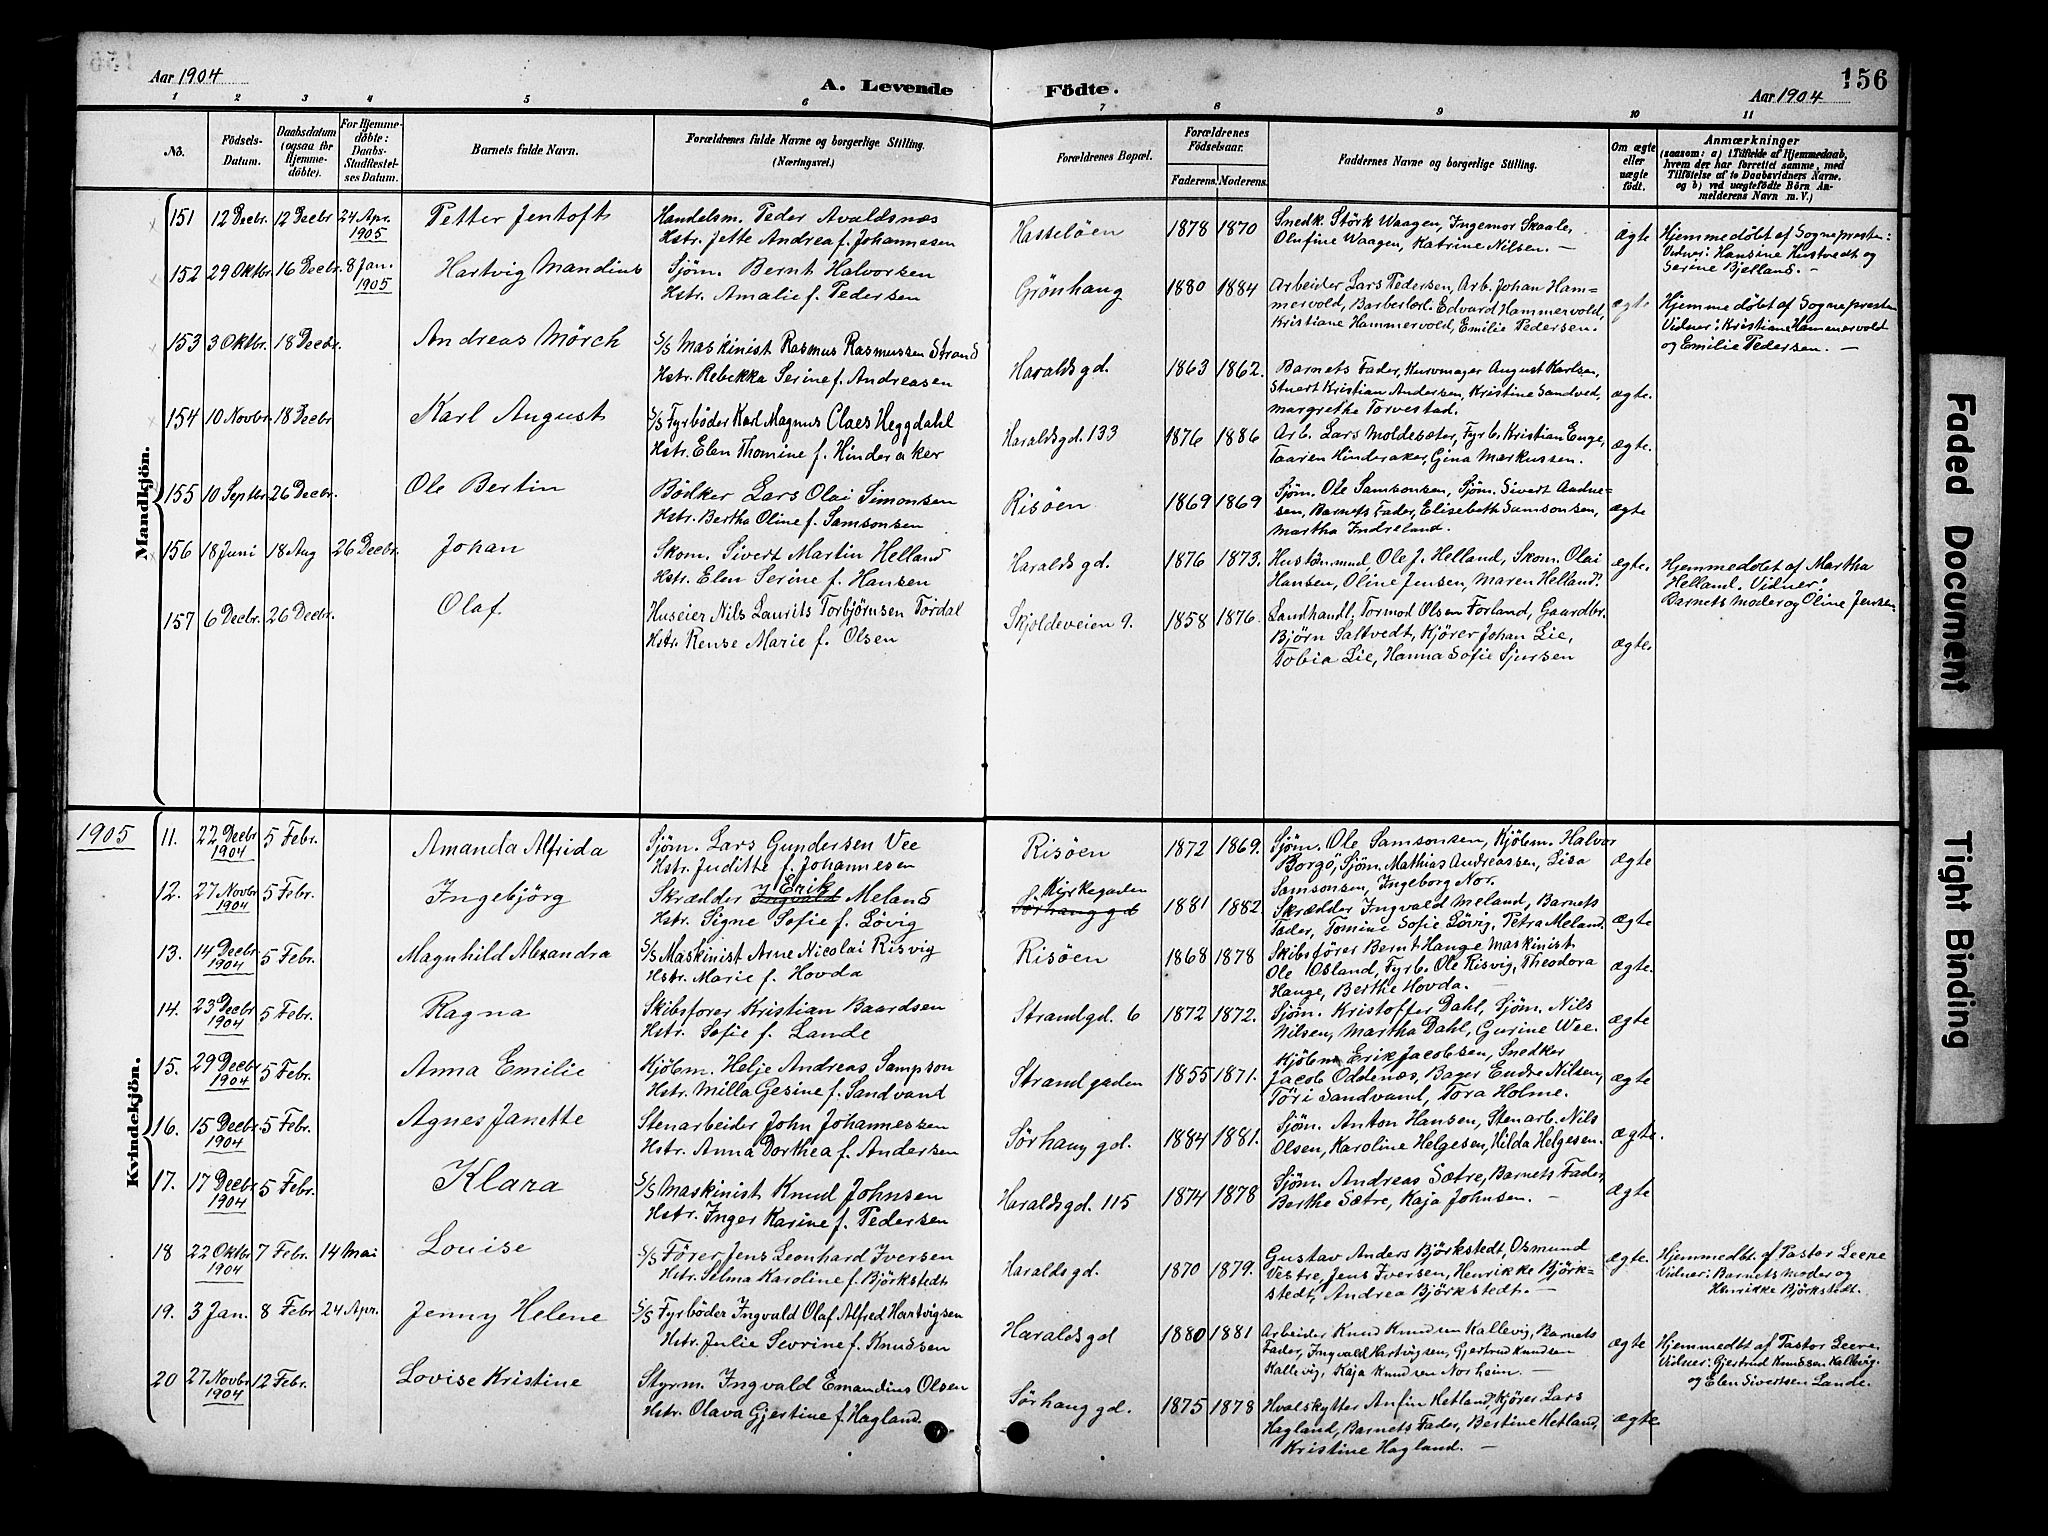 Aar 1904
A. Levende
Födte.
156
Aar 1904
1 2 3 4 5 6 7 8 9 10 11
No.
Födsels-Datum.
Daabsdatum (ogsaa for Hjemme-döbte).
For Hjemme-döbte: Daabs-Stadfæstel-ses Datum.
Barnets fulde Navn.
Forældrenes fulde Navne og borgerlige Stilling. (Næringsvei.)
Forældrenes Bopæl.
Forældrenes Födselsaar.
Faderens. Moderens.
Faddernes Navne og borgerlige Stilling.
Om ægte eller uægte födt.
Anmærkninger
(saasom: a) i Tilfælde af Hjemmedaab, hvem der har forrettet samme, med Tilföielse af to Daabsvidners Navne, og b) ved uægtefödte Börn An-melderens Navn m. V.)
Mandkjön.
151 12 Decbr. 12 Decbr 24 Apr. 1905 Petter Jentoft Handelsm. Peder Avaldsnæs
Hstr. Jette Andrea f. Johannesen
Hasseløen 1878 1870 Snedk. Störk Waagen, Ingemor Skaale,
Olufine Waagen, Katrine Nilsen. —
ægte Hjemmedøbt af Sognepresten:
Vidner: Hansine Hustvedt og
Serine Bjelland. —
152 29 Oktbr. 16 Decbr. 8 Jan. 1905 Hartvig Mandius Sjöm. Bernt Halvorsen
Hstr. Amalie f. Pedersen
Grönhaug 1880 1884 Arbeider Lars Pedersen, Arb. Johan Ham=
mervold, Barberlærl. Edvard Hammervold,
Kristiane Hammervold, Emilie Pedersen.
ægte Hjemmedøbt af Sognepresten
Vidner: Kristiane Hammervold
og Emilie Pedersen. —
153 3 Oktbr. 18 Decbr. Andreas Mörch S/S Maskinist Rasmus Rasmussen Strand
Hstr. Rebekka Serine f. Andreasen
Haraldsgd. 1863 1862. Barnets Fader, Kurvmager August Karlsen,
Stuert Kristian Andersen, Kristine Sandved,
Margrethe Torvestad.
ægte.
154 10 Novbr. 18 Decbr Karl August S/S Fyrböder Karl Magnus Claes Heggdahl
Hstr. Elen Thomine f. Hinderaker
Haraldsgd. 133 1876 1886 Arb. Lars Moldesæter, Fyrb. Kristian Enge,
Taaren Hinderaker, Gina Markussen.
ægte.
155 10 Septbr 26 Decbr. Ole Bertin Bödker Lars Olai Simonsen
Hstr. Bertha Oline f. Samsonsen
Risöen 1869 1869 Sjöm. Ole Samsonsen, Sjöm. Sivert Aadne=
sen, Barnets Fader, Elisebeth Samsonsen,
Martha Indreland.
ægte
156 18 Juni 18 Aug 26 Decbr. Johan Skom. Sivert Martin Helland
Hstr. Elen Serine f. Hansen
Haraldsgd. 1876 1873. Hustömmed, Ole J. Helland, Skom. Olai
Hansen, Oline Jensen, Maren Helland.
ægte. Hjemmedøbt af Martha
Helland. Vidner:
Barnets Moder og Oline Jensen
157 6 Decbr. 26 Decbr. Olaf. Huseier Nils Laurits Torbjörnsen Tordal
Hstr. Rense Marie f. Olsen
Skjoldeveien 9. 1858 1876. Landhandl. Tormod Olsen Forland, Gaardbr.
Björn Saltvedt, Kjörer Johan Lie,
Tobia Lie, Hanna Sofie Sjursen
ægte.
1905
Kvindekjön.
11. 22 Decbr 1904 5 Febr. Amanda Alfrida Sjöm. Lars Gundersen Vee
Hstr. Juditte f. Johannesen
Risöen 1872 1869. Sjöm. Ole Samsonsen, Kjöbm. Halvor
Borgö, Sjöm. Mathias Andreassen, Lisa
Samsonsen, Ingeborg Nor.
ægte
12. 27 Novbr 1904 5 Febr. Ingebjörg Skrædder Ingvald Erik Meland
Hstr. Signe Sofie f. Lövig
Kirkegaden
Sörhauggd 1881 1882 Skrædder Ingvald Meland, Barnets
Fader, Tomine Sofie Lövig, Petra Meland.
ægte
13. 14 Decbr 1904 5 Febr. Magnhild Alexandra S/S Maskinist Arne Nicolai Risvig
Hstr. Marie f. Hovda
Risöen 1868 1878 Skibsförer Bernt Hauge Maskinist
Ole Osland, Fyrb. Ole Risvig, Theodora
Hauge, Berthe Hovda. —
ægte.
14. 23 Decbr 1904 5 Febr. Ragna Skibsförer Kristian Baardsen
Hstr. Sofie f. Lande
Strandgd. 6 1872 1872. Sjöm. Kristoffer Dahl, Sjöm. Nils
Nilsen, Martha Dahl, Gurine Wee.
ægte
15. 29 Decbr 1904 5 Febr. Anna Emilie Kjöbm. Helje Andreas Sampson
Hstr. Milla Gesine f. Sandvand
Strandgaden 1855 1871. Kjöbm Erik Jacobsen, Snedker
Jacob Oddenæs, Bager Endre Nilsen,
Töri Sandvand, Tora Holme.
ægte
16. 15 Decbr 1904 5 Febr. Agnes Janette Stenarbeider John Johannessen
Hstr. Anna Dorthea f. Andersen
Sörhauggd. 1884 1881. Sjöm. Anton Hansen, Stenarb. Nils
Olsen, Karoline Helgesen, Hilda Helgesen.
ægte.
17. 17 Decbr 1904 5 Febr. Klara S/S Maskinist Knud Johnsen
Hstr. Inger Karine f. Pedersen
Haraldsgd. 115 1874 1878 Sjöm. Andreas Sætre, Barnets Fader,
Berthe Sætre, Kaja Johnsen. —
ægte
18 22 Oktbr 1904 7 Febr. 14 Mai Louise S/S Förer Jens Leonhard Iversen
Hstr. Selma Karoline f. Björkstedt
Haraldsgd. 1870 1879. Gustav Anders Björkstedt, Osmund
Vestre, Jens Iversen, Henrikke Björk=
stedt, Andrea Björkstedt. —
ægte. Hjemmedbt. af Pastor Leere
Vidner: Barnets Moder og
Henrikke Björkstedt.
19. 3 Jan. 8 Febr 24 Apr. Jenny Helene S/S Fyrböder Ingvald Olaf Alfred Hartvigsen
Hstr. Julie Sevrine f. Knudsen
Haraldsgd 1880 1881 Arbeider Knud Knudsen Kallevig, Barnets
Fader, Ingvald Hartvigsen, Gjertrud Knudsen
Kallevig, Kaja Knudsen Norheim.
ægte Hjemmedbt af Pastor Leere.
Vidner: Gjertrud Knudsen Kallevig.
og Elen Sivertsen Lande.
20 27 Novbr 1904 12 Febr. Lovise Kristine Styrm. Ingvald Emandius Olsen
Hstr. Olava Gjertine f. Hagland.
Sörhauggd. 1875 1878 Hvalskytter Anfin Hetland, Kjörer Lars
Hagland, Barnets Fader, Bertine Hetland,
Kristine Hagland. —
ægte
Faded Document
Tight Binding